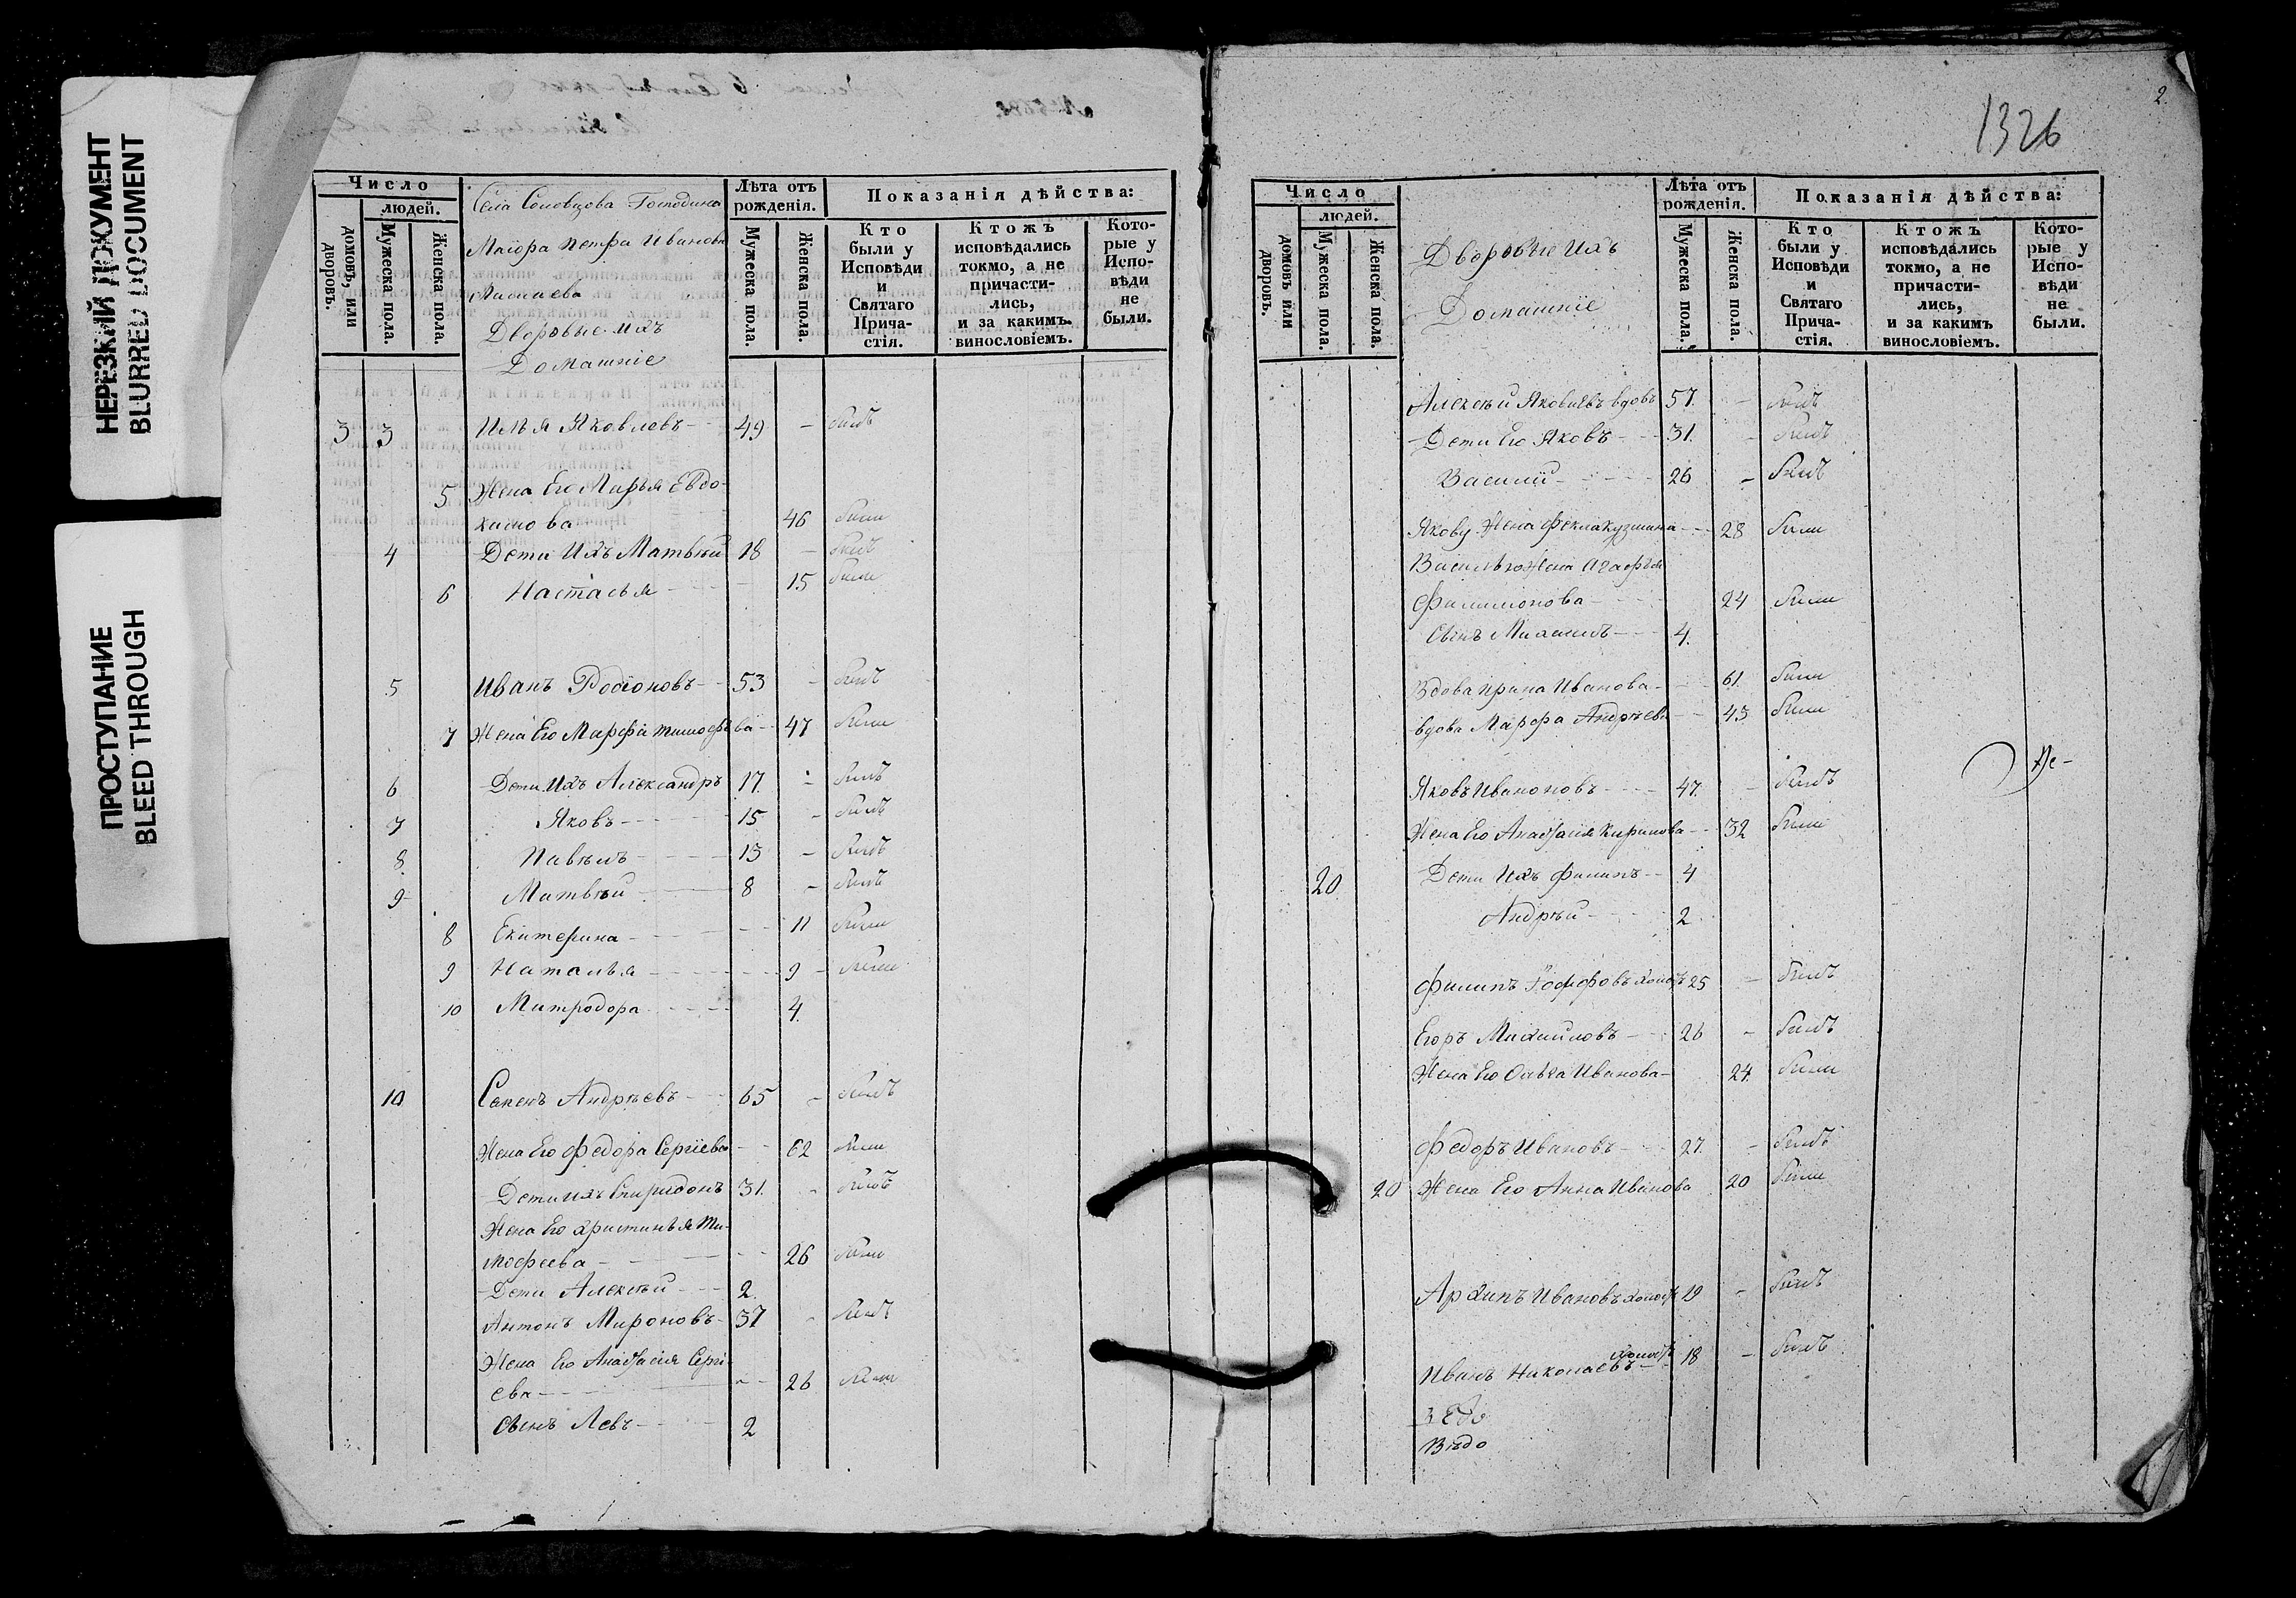 НЕРЕЗКИЙ ДОКУМЕНТ
BLURRED DOCUMENT
ПРОСТУПАНИЕ
BLEED THROUGH
Число
людей.
домовъ, или дворовъ.
Мужеска пола.
Женска пола.
Села Соловцова Господина
Маіора Петра Иванова
Дворовые ихъ
Домашніе
Лѣта отъ рожденія.
Мужеска пола.
Женска пола.
Показанія дѣйства:
Кто были у Исповѣди и Святаго Прича-стія.
Ктожъ исповѣдались токмо, а не причасти-лись, и за какимъ винословіемъ.
Кото-рые у Испо-вѣди не были.
3 3 Илья Яковлевъ 49 - былъ
5 Жена Его Марья Евдо-
кимова 46 была
4 Дети Ихъ Матвѣй 18 - былъ
6 Настасья 15 была
5 Иванъ Родіоновъ 53 - былъ
7 Жена Его Марфа Тимофѣва 47 была
6 Дети Ихъ Александръ 17 - былъ
7 Яковъ 15 - былъ
8 Павѣлъ 13 - былъ
9 Матвѣй 8 - былъ
8 Екатерина 11 была
9 Наталья 9 была
10 Митродора 4
10 Семенъ Андрѣевъ 65 - былъ
Жена Его Федора Сергіева 62 была
Дети ихъ Спиридонъ 31. - былъ
Жена Его Христинья Ти-
мофеева 26 была
Дети Алексѣй 2
Антонъ Мироновъ 37 - былъ
Жена Его Анастасія Серги-
ева 26 была
Сынъ Левъ 2
2.
1326
Число
людей.
домовъ или дворовъ.
Мужеска пола.
Женска пола.
Дворовые Ихъ
Домашніе
Лѣта отъ рожденія.
Мужеска пола.
Женска пола.
Показанія дѣйства:
Кто были у Исповѣди и Святаго Прича-стія.
Ктожъ исповѣдались токмо, а не причасти-лись, и за какимъ винословіемъ.
Кото-рые у Испо-вѣди не были.
Алексѣй Яковлевъ вдовъ 57. - былъ
Дети Его Яковъ 31. - былъ
Василій 26 - былъ
Якову Жена Фекла Кузмина 28 была
Василью Жена Агафья
Филимонова 24 была
Сынъ Михаилъ 4.
Вдова Ирина Иванова 61. была
вдова Марфа Андрѣева 43 была
Яковъ Ивановъ 47. - былъ
Жена Его Анастасія Кирилова 32 была
20 Дети Ихъ Филипъ 4
Андрѣй 2
Филипъ холостъ 25 - былъ
Егоръ Михайловъ 26 - былъ
Жена Его Ольга Иванова 24. была
Федоръ Ивановъ 27. - былъ
20 Жена Его Анна Иванова 20 была
Архипъ Ивановъ холостъ 19 - былъ
Иванъ Николаевъ холостъ 18 - былъ
Вѣдо